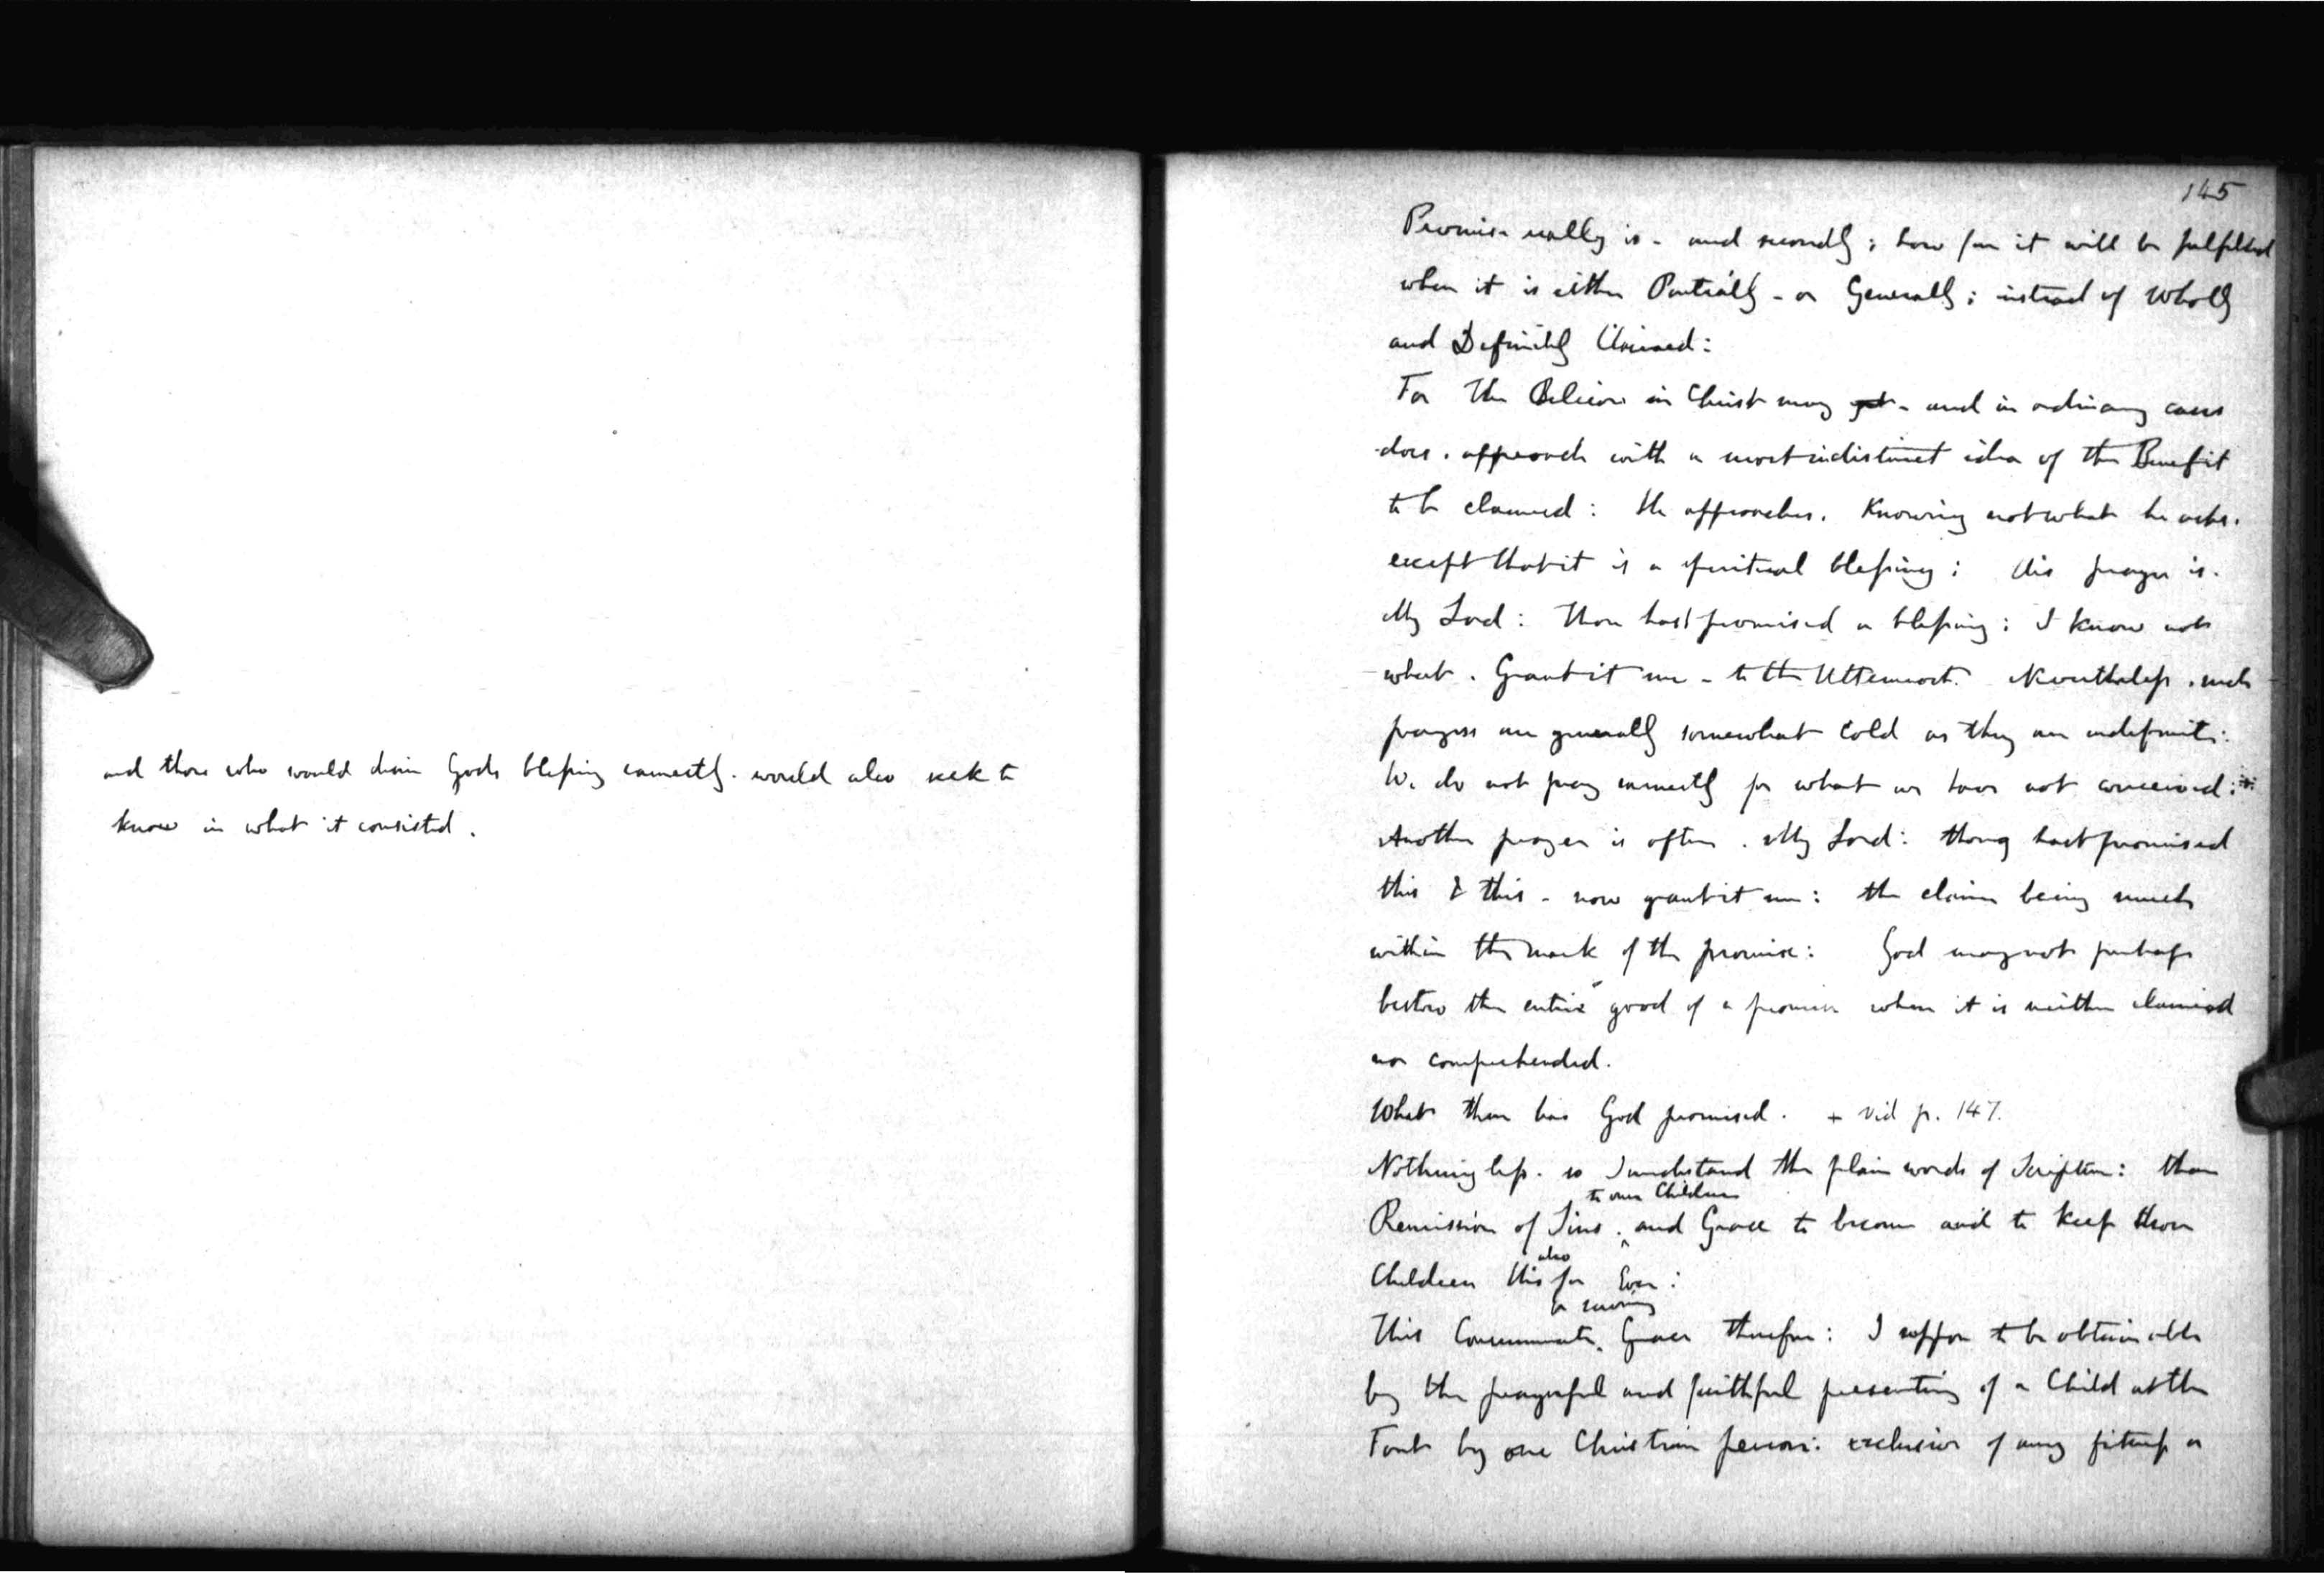 and those who would desire Gods blessing earnestly. would also seek to
know in what it consisted.
145
Promise really is - and secondly; how far it will be fulfilled
when it is either Partially - or Generally; instead of Wholly
and Definitely Claimed:
For The Believer in Christ may yet - and in ordinary cases
does. approach with a most indistinct idea of the Benefit
to be claimed: He approaches. Knowing not what he asks.
except that it is a spiritual blessing: His prayer is.
My Lord: Thou hast promised a blessing: I know not
what. Grant it me - to the Uttermost. Nevertheless. such
prayers are generally somewhat cold as they are indefinite:
We do not pray earnestly for what we have not conceived:
Another prayer is often. My Lord: thou hast promised
this & this - now grant it me: the claim being much
within the mark of the promise: God may not perhaps
bestow the entire good of a promise when it is neither claimed
nor comprehended.
What then has God promised. + vid p. 147.
Nothing less. so I understand the plain words of Scripture: than
to our Children
Remission of Sins. and Grace to become and to keep them
also
Children His for Ever:
or saving
This Consummate Grace therefore: I suppose to be obtainable
by the prayerful and faithful presenting of a Child at the
Font by one Christian person: exclusive of any fitness or